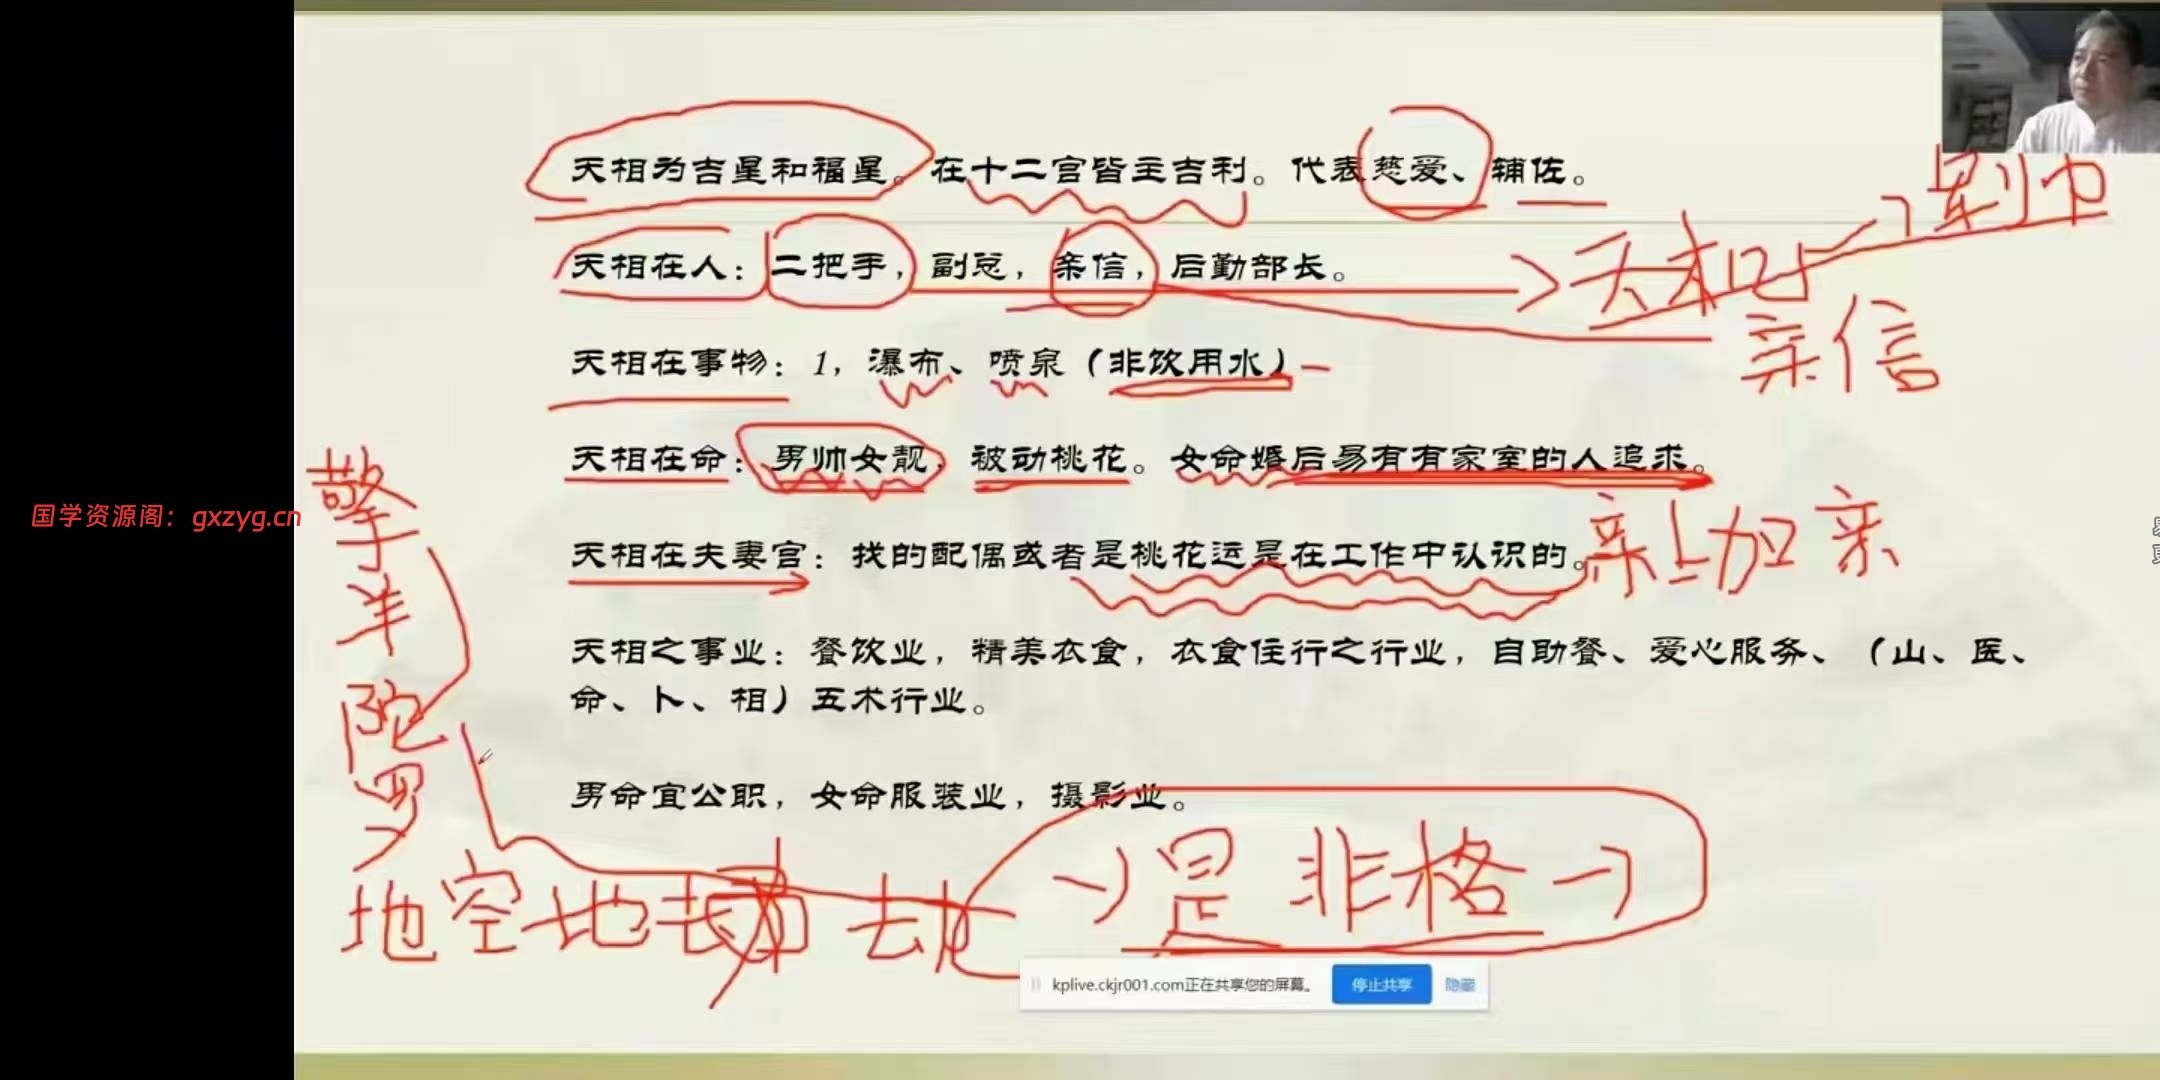 天相为吉星和福星。在十二宫皆主吉利。代表慈爱、辅佐。
天相在人：二把手，副总，亲信，后勤部长。
天相
亲信
天相在事物：1，瀑布、喷泉（非饮用水）
天相在命：男帅女靓，被动桃花。女命婚后易有有家室的人追求。
国学资源阁：gxzyg.cn
天相在夫妻宫：找的配偶或者是桃花运是在工作中认识的。
亲上加亲
天相之事业：餐饮业，精美衣食，衣食住行之行业，自助餐、爱心服务、（山、医、
命、卜、相）五术行业。
男命宜公职，女命服装业，摄影业。
擎羊陀罗
地空地劫
是非格
kplive.ckjr001.com正在共享您的屏幕。 停止共享 隐藏